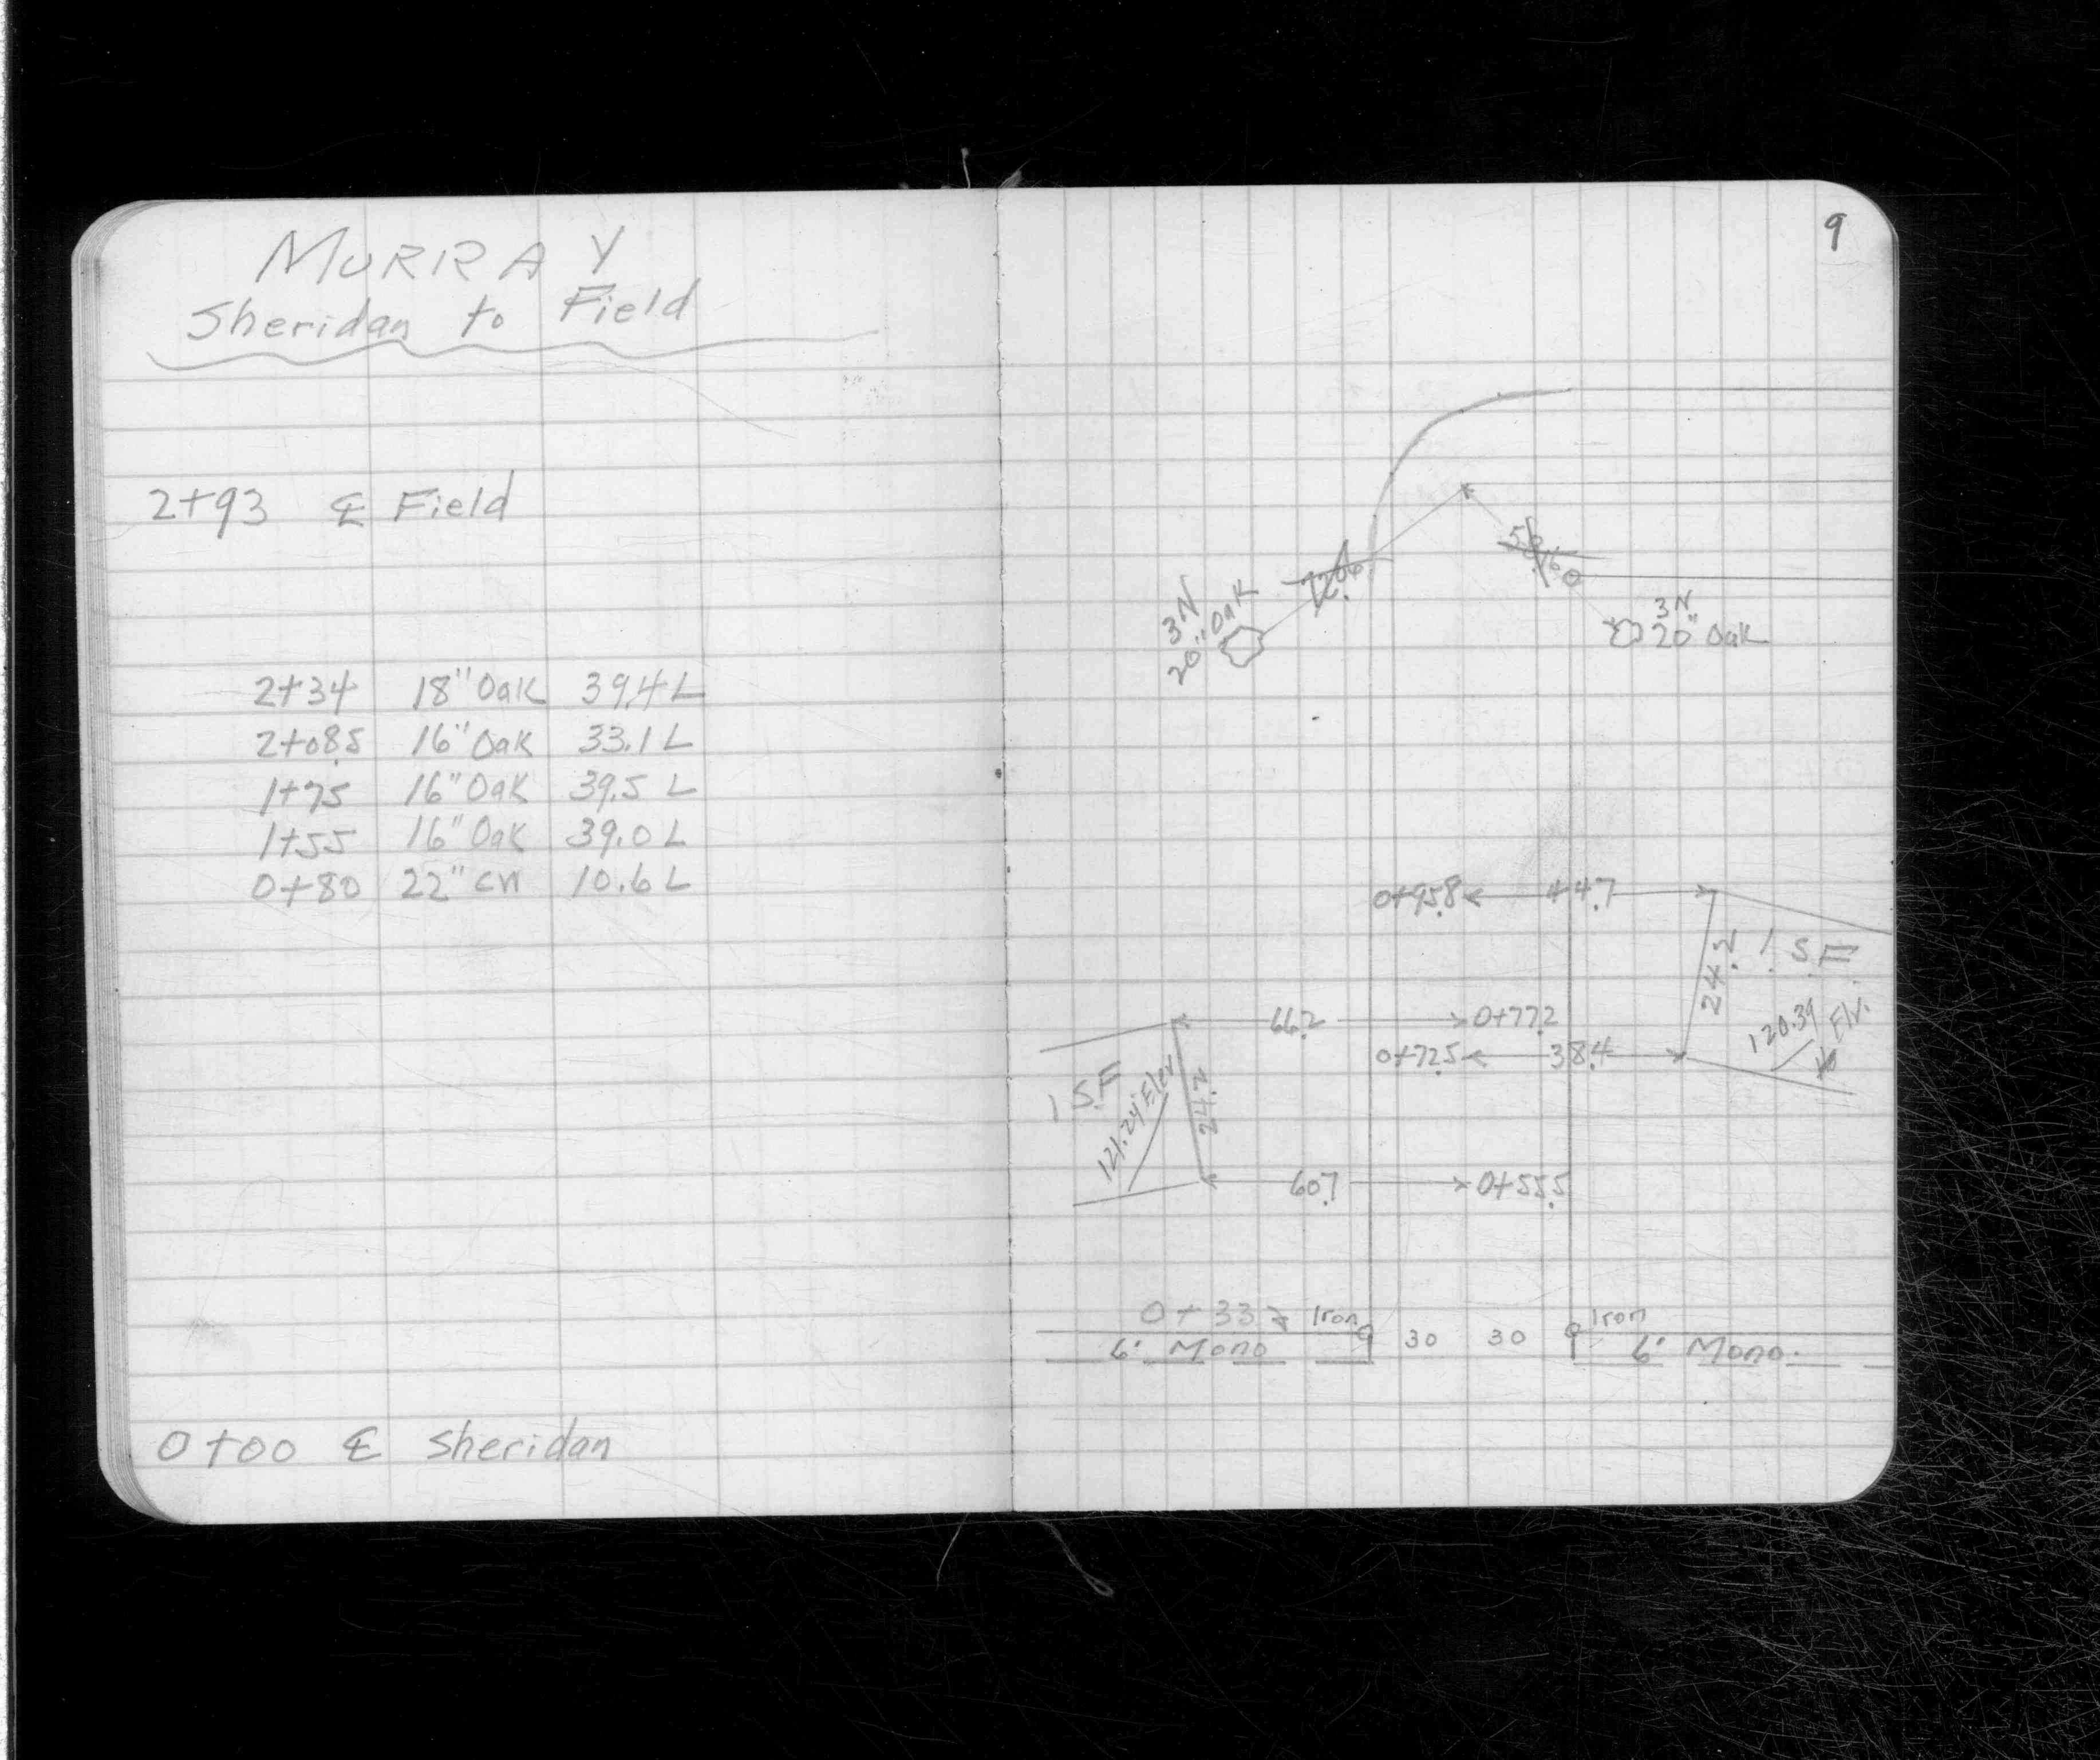 MURRAY
Sheridan to Field
2+93 ℄ Field
2+34 18" Oak 39.4 L
2+08.5 16" Oak 33.1 L
1+75 16" Oak 39.5 L
1+55 16" Oak 39.0 L
0+80 22" CH 10.6 L
0+00 ℄ Sheridan
9
3N
20" Oak
3N
20" Oak
0+95.8 44.7
24.2
1 S.F.
120.39 Elv.
66.2 0+77.2
0+72.5 38.4
1 S.F
121.24 Elev
24.2
60.7 0+55.5
0+33 Iron
30 30
Iron
6' Mono
6' Mono.